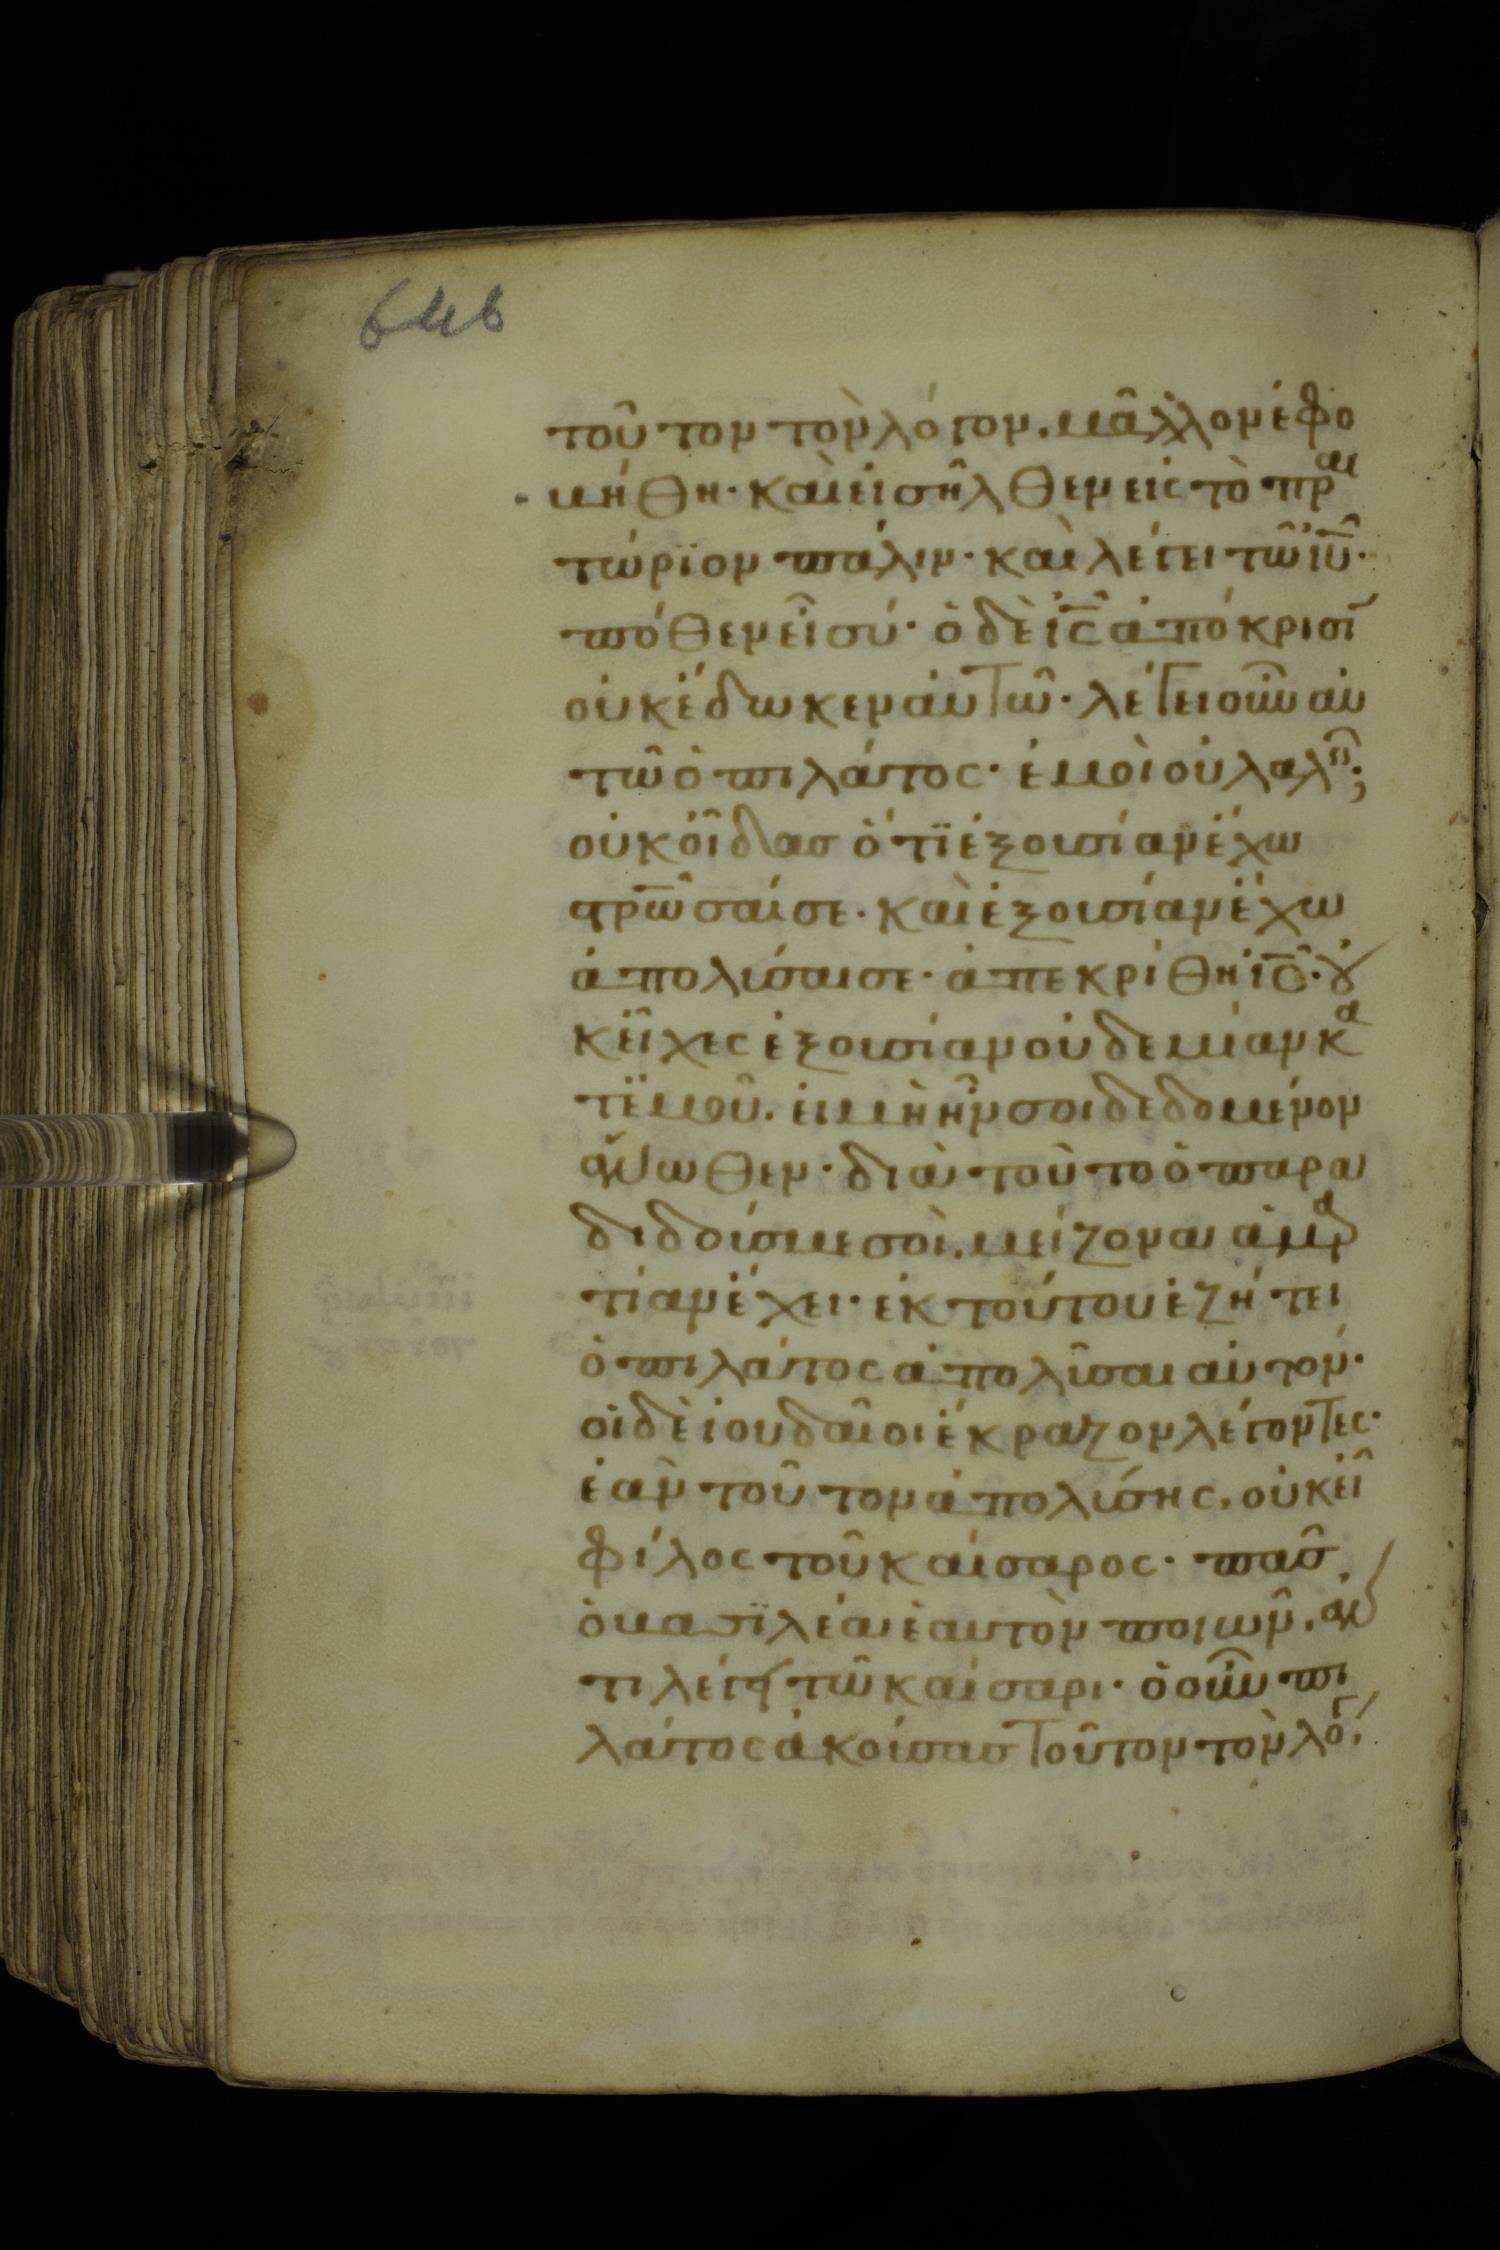 646
τοῦτον τὸν λόγον. μᾶλλον ἐφο
βήθη· καὶ εἰσῆλθεν εἰς τὸ πραι
τώρϊον πάλιν· καὶ λέγει τῶ ἰῦ·
πόθεν εἶ σύ· ὁ δὲ ἰς ἀπόκρισῖ
οὐκ ἔδωκεν αὐτῶ· λέγει οὖν αὐ
τῶ ὁ πιλάτος· ἐμοὶ οὐ λαλῆς;
οὐκ οἶδας ὅτϊ ἐξουσίαν ἔχω
σρῶσαί σε· καὶ ἐξουσίαν ἔχω
ἀπολύσαι σε· ἀπεκρίθη ἰς· οὐ
κ εἶχες ἐξουσίαν οὐδεμίαν κα
τ ἐμοῦ. εἰ μὴ ἦν σοι δεδομένον
ἄνωθεν· διὰ τοῦτο ὁ παρα
διδούς με σοὶ. μείζονα ἁμαρ
τίαν ἔχει· ἐκ τούτου ἐζήτει
ὁ πιλάτος ἀπολῦσαι αὐτόν·
οἱ δὲ ἰουδαῖοι ἔκραζον λέγοντες·
ἐὰν τοῦτον ἀπολύσης. οὐκ εἶ
φίλος τοῦ καίσαρος· πᾶς
ὁ βασϊλέα ἑαυτὸν ποιῶν. ἀν
τιλέγει τῶ καίσαρι· ὁ οὖν πι
λάτος ἀκούσας τοῦτον τὸν λόγ